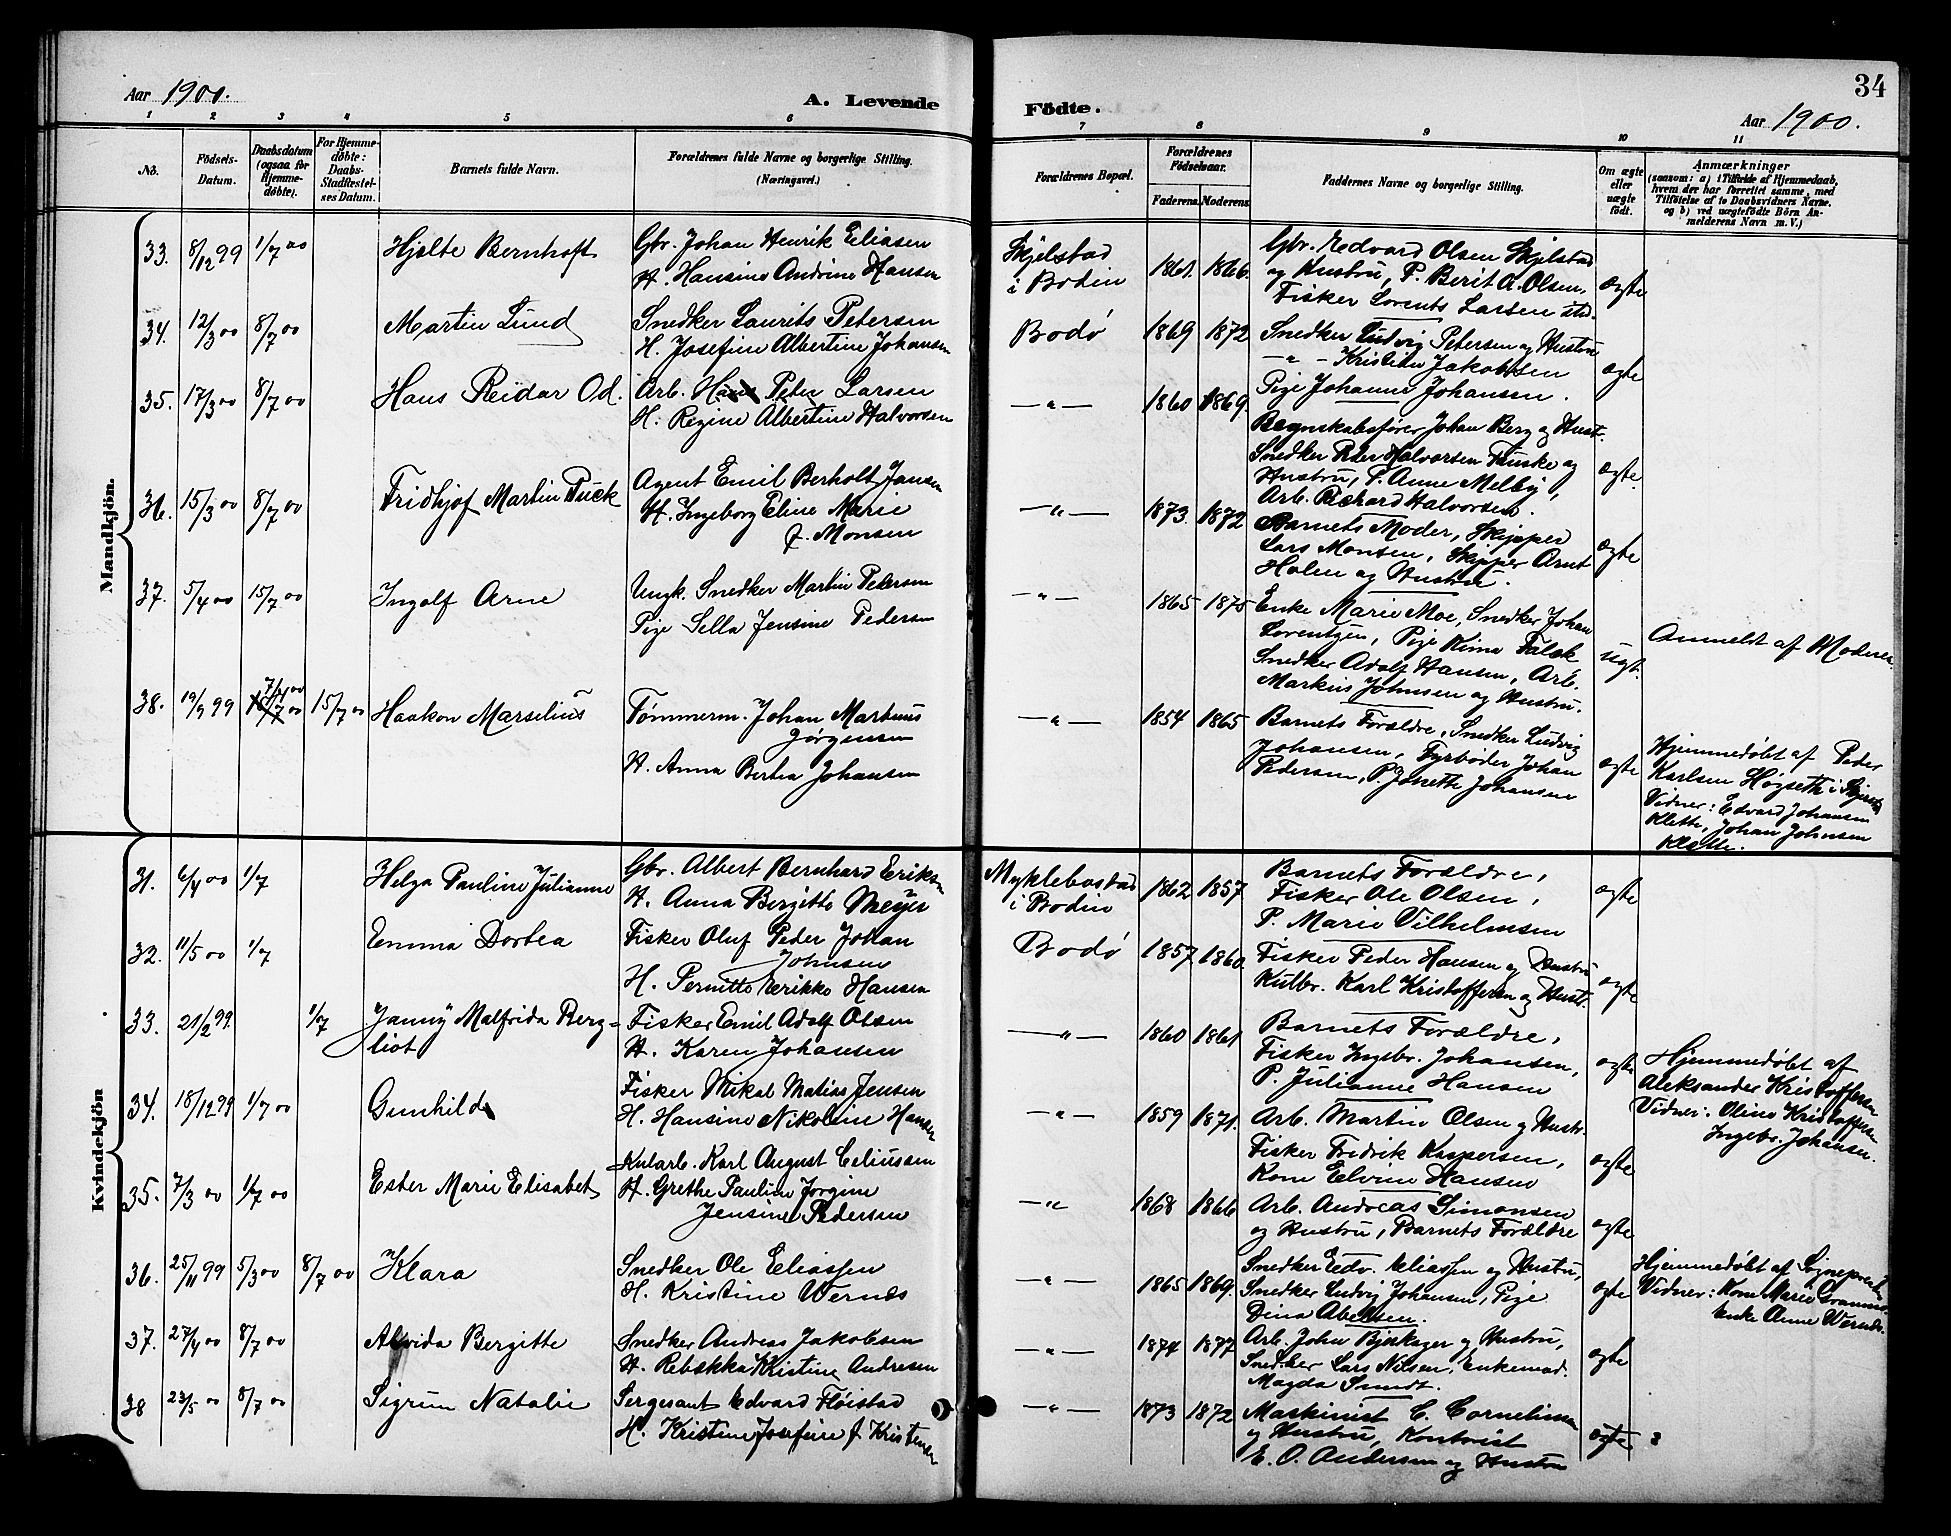 34
Aar 1900.
A. Levende
Fødte.
Aar 1900.
1 2 3 4 5 6 7 8 9 10 11
No.
Fødsels-Datum.
Daabsdatum (ogsaa for Hjemmedøbte).
For Hjemmedøbte: Daabs-Stadfæstelses Datum.
Barnets fulde Navn.
Forældrenes fulde Navne og borgerlige Stilling. (Næringsvei.)
Forældrenes Bopæl.
Forældrenes Fødselsaar.
Faderens. Moderens.
Faddernes Navne og borgerlige Stilling.
Om ægte eller uægte født.
Anmærkninger
(saasom: a) i Tilfælde af Hjemmedaab, hvem der har forrettet samme, med Tilføielse af to Daabsvidners Navne, og b) ved uægtefødte Børn Anmelderens Navn m. V.)
Mandkjön.
33. 8/12 99 1/7 00 Hjelte Bernhoft
Gbr. Johan Henrik Eliasen
H. Hansine Andrine Hansen
Skjelstad
i Bodin
1861. 1866.
Gbr. Edvard Olsen Skjelstad
og Hustru, P. Berit A. Olsen,
Fisker Lorents Larsen std.
ægte
34. 12/3 00 8/7 00 Martin Lund
Snedker Laurits Petersen
H. Josefine Albertine Johansen
Bodø
1869 1872
Snedker Ludvig Petersen og Hustru
— " — Kristian Jakobsen
Pige Johanne Johansen.
ægte
35. 17/3 00 8/7 00 Hans Reidar Od.
Arb. Hans Peter Larsen
H. Regine Albertine Halvorsen
— " —
1860 1869.
Regnskabsfører Johan Berg og Hust.
Snedker Peder Halvorsen Fauske og
Hustru, P. Anne Melby,
Arb. Richard Halvorsen.
ægte.
36. 15/3 00 8/7 00 Fridhjof Martin Puck
Agent Emil Berholt Jansen
H. Ingeborg Eline Marie
f. Monsen
— " —
1873. 1872
Barnets Moder, Skipper
Lars Monsen, Skipper Arnt
Holen og Hustru.
ægte
37. 5/4 00 15/7 00 Ingolf Arne
Ungk. Snedker Martin Petersen
Pige Sella Jensine Pedersen
— " —
1865 1875
Enke Marie Moe, Snedker Johan
Lorentzen, Pige Kima Falck
Snedker Adolf Hansen, Arb.
Markus Johnsen og Hustru.
ugt.
Anmeldt af Moderen
38. 19/9 99 7/4 00 15/7 00 15/7 00 Haakon Marselius
Tømmerm. Johan Martinus
Jørgensen
H. Anna Bertea Johansen
— " —
1854 1865
Barnets Forældre, Snedker Ludvig
Johansen, Fyrbøder Johan
Pedersen, P. Jonette Johansen
ægte
Hjemmedøbt af Peder
Karlsen Høgseth i Skjerstad
Vidner: Edvard Johansen
Klette, Johan Johnsen
Klette.
Kvindekjön
31. 6/4 00 1/7 Helga Pauline Julianne
Gbr. Albert Bernhard Eriksen
H. Anna Bergitte Meyer
Myklebostad
i Bodin
1862 1857
Barnets Forældre,
Fisker Ole Olsen,
P. Marie Vilhelmsen
ægte
32. 11/5 00 1/7 Emma Dortea
Fisker Oluf Peder Johan
Johnsen
H. Pernitte Erikke Hansen
Bodø
1857 1860.
Fisker Peder Hansen og Hustru
Kulbr. Karl Kristoffersen og Hust.
ægte
33. 21/2 99. 1/7 Janny Malfrida Berg-
liot
Fisker Emil Adolf Olsen
H. Karen Johansen
— " —
1860 1861
Barnets Forældre,
Fisker Ingebr. Johansen,
P. Julianne Hansen
ægte
Hjemmedøbt af
Aleksander Kristoffersen
Vidner: Oline Kristoffersen
Ingebr. Johansen.
34. 18/12 99 1/7 00 Gunhilde
Fisker Mikal Matias Jensen
H. Hansine Nikoline Hansen
— " —
1859 1871.
Arb. Martin Olsen og Hustr.
Fisker Fredrik Kaspersen,
Kone Elvine Hansen
ægte
35. 7/3 00 1/7 00 Ester Marie Elisabet
Kularb. Karl August Celiussen
H. Grethe Pauline Jorgine
Jensine Pedersen
— " —
1868 1866
Arb. Andreas Simonsen
og Hustru, Barnets Forældre
ægte
36. 25/11 99 5/3 00 8/7 00 Klara
Snedker Ole Eliassen
H. Kristine Wernes
— " —
1865 1869.
Snedker Edv. Eliassen og Hustru,
Snedker Ludvig Johansen, Pige
Dina Abelsen.
ægte
Hjemmedøbt af Sognepresten
Vidner: Kone Marie
Enke Anne Wernes.
37. 27/4 00 8/7 00 Alvida Bergitte
Snedker Andreas Jakobsen
H. Rebekka Kristine Andresen
— " —
1874 1877
Arb. John Bjerkager og Hustru,
Snedker Lars Nilsen, Enkemad.
Magda Smidt.
ægte
38 23/5 00 8/7 00 Sigrun Natalie
Sergeant Edvard Fløistad
H. Kristine Josefine f. Kristensen
— " —
1873 1872
Maskinist C. Cornelissen
og Hustru, Kontorist
E. O. Andersen og Hustru
ægte